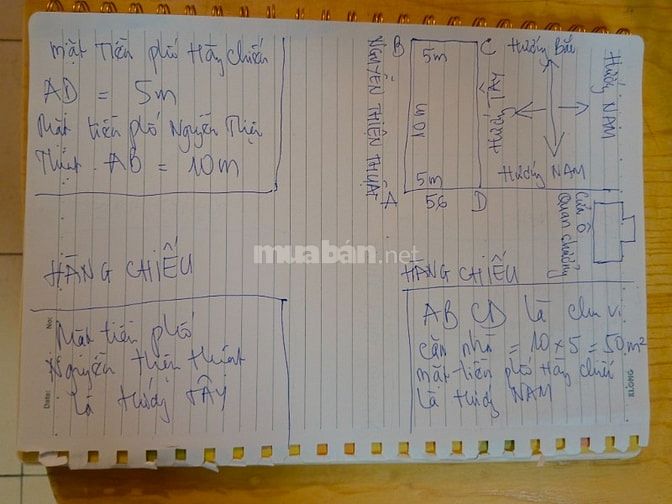 mặt tiền phố Hàng chiếu
AD = 5m
Mặt tiền phố Nguyễn Thiện
Thuật. AB = 10m
HÀNG CHIẾU
Mặt tiền phố
Nguyễn thiện thuật
là hướng TÂY
NGUYỄN THIỆN THUẬT
B
5m
C
10m
5m
A
56
D
Hướng Bắc
Hướng TÂY
Hướng NAM
Hướng NAM
Cửa Ô
Quan chưởng
HÀNG CHIẾU
AB CD là chu vi
căn nhà = 10 x 5 = 50m²
mặt tiền phố Hàng chiếu
là hướng NAM
muabán.net
No:
Date:
KLONG